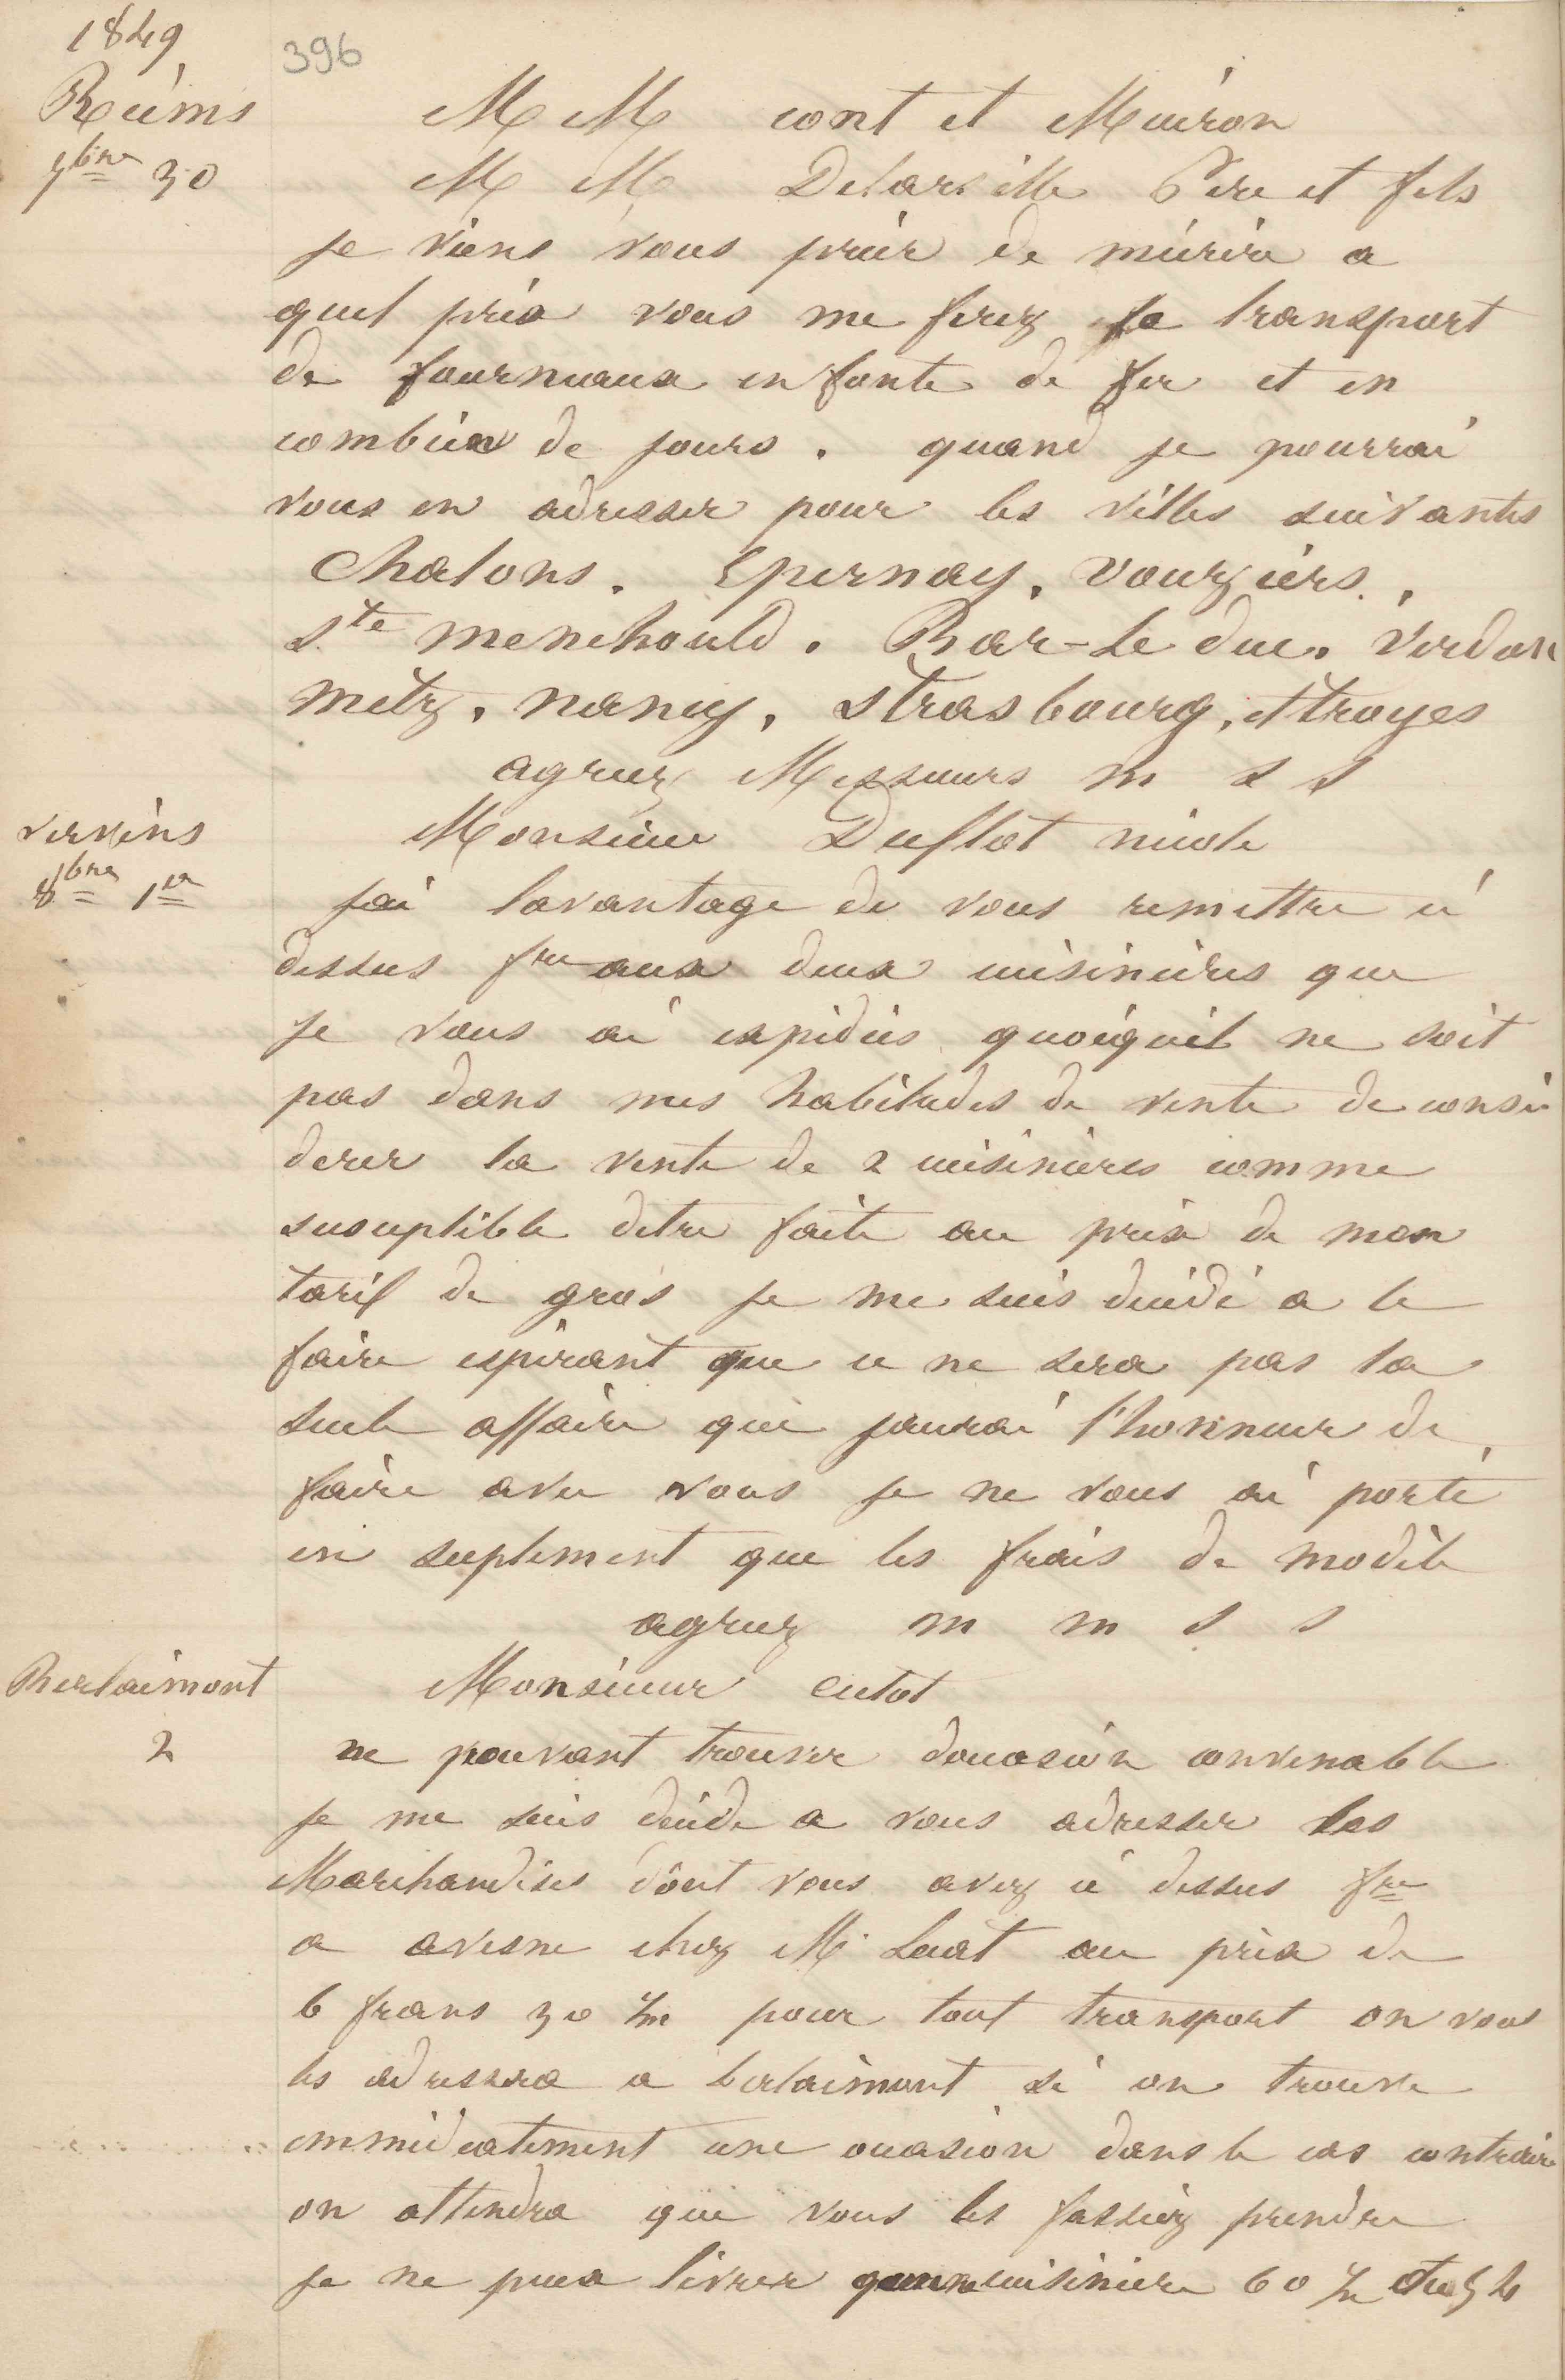 1849
396
Reims
7bre 30
MM cont et Muiron
MM Delarsille Père et fils
je viens vous prier de mécrire a
quel prix vous me ferez le transport
de fourneaux en fonte de fer et en
combien de jours. quand je pourrai
vous en adresser pour les villes suivantes
Chalons. Epernay, vouziers.,
Ste menehould. Bar-Le duc. Verdun
metz, nancy, Strasbourg, et troyes
agreez Messieurs m s s
vervins
8bre 1er
Monsieur Duflot nicole
jai lavantage de vous remettre ci
dessus fre aux deux cuisinières que
je vous ai expidiés quoiquil ne soit
pas dans mes habitudes de vente de consi
derer la vente de 2 cuisinières comme
suseuptible detre faite au prix de mon
tarif de gros je me suis décidé a le
faire espérant que ce ne sera pas la
seule affaire que jaurai l'honneur de
faire avec vous je ne vous ai porté
en suplement que les frais de modèle
agreez m m s s
Berlaimont
2
Monsieur cutot
ne pouvant trouver doccasion convenable
je me suis décide a vous adresser les
Marchandises dont vous avez ci dessus fre
a avesne chez Mr Luat au prix de
6 frans 30 %m pour tout transport on vous
les adressera a berlaimont si on trouve
emmidiatement une occasion dans le cas contraire
on attendra que vous les fassiez prendre
je ne peux livrer qu'une cuisinière 60 %m